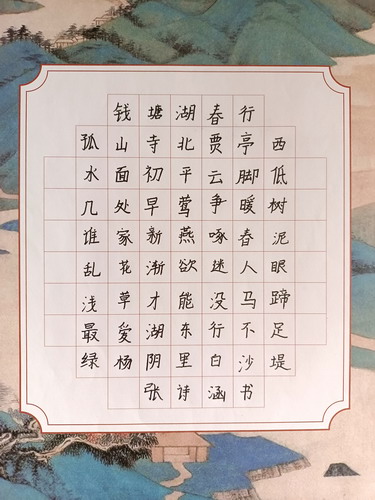 钱塘湖春行
孤山寺北贾亭西
水面初平云脚低
几处早莺争暖树
谁家新燕啄春泥
乱花渐欲迷人眼
浅草才能没马蹄
最爱湖东行不足
绿杨阴里白沙堤
张诗涵书